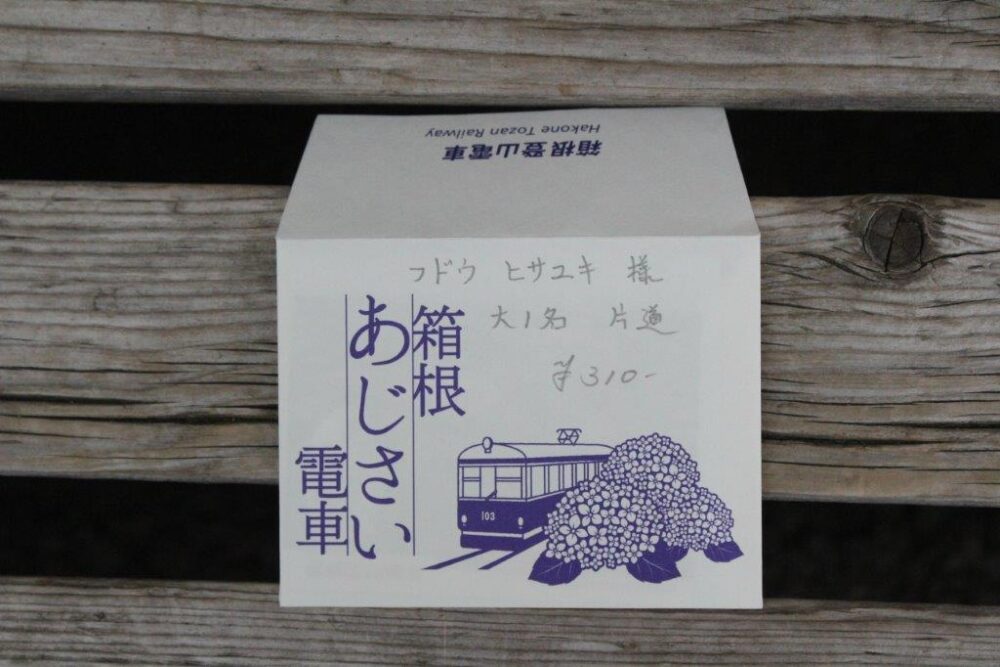 箱根登山電車
Hakone Tozan Railway
フドウ ヒサユキ 様
大1名 片道
¥310-
箱根
あじさい
電車
103